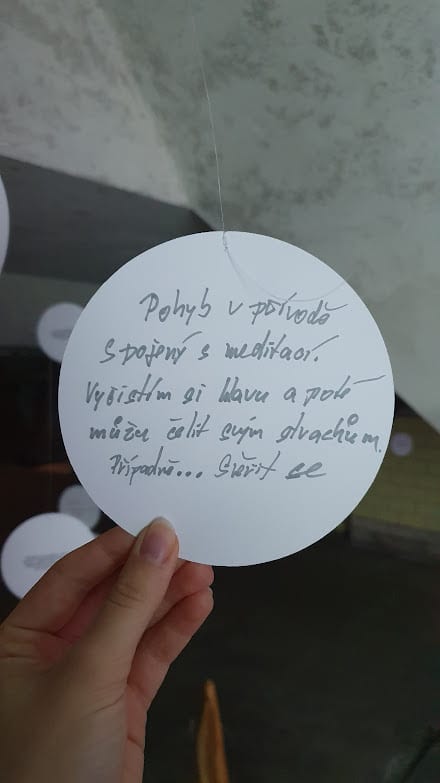 Pohyb v přírodě
spojený s meditací.
Vyčistím si hlavu a poté
můžu čelit svým strachům.
Případně... Svěřit se